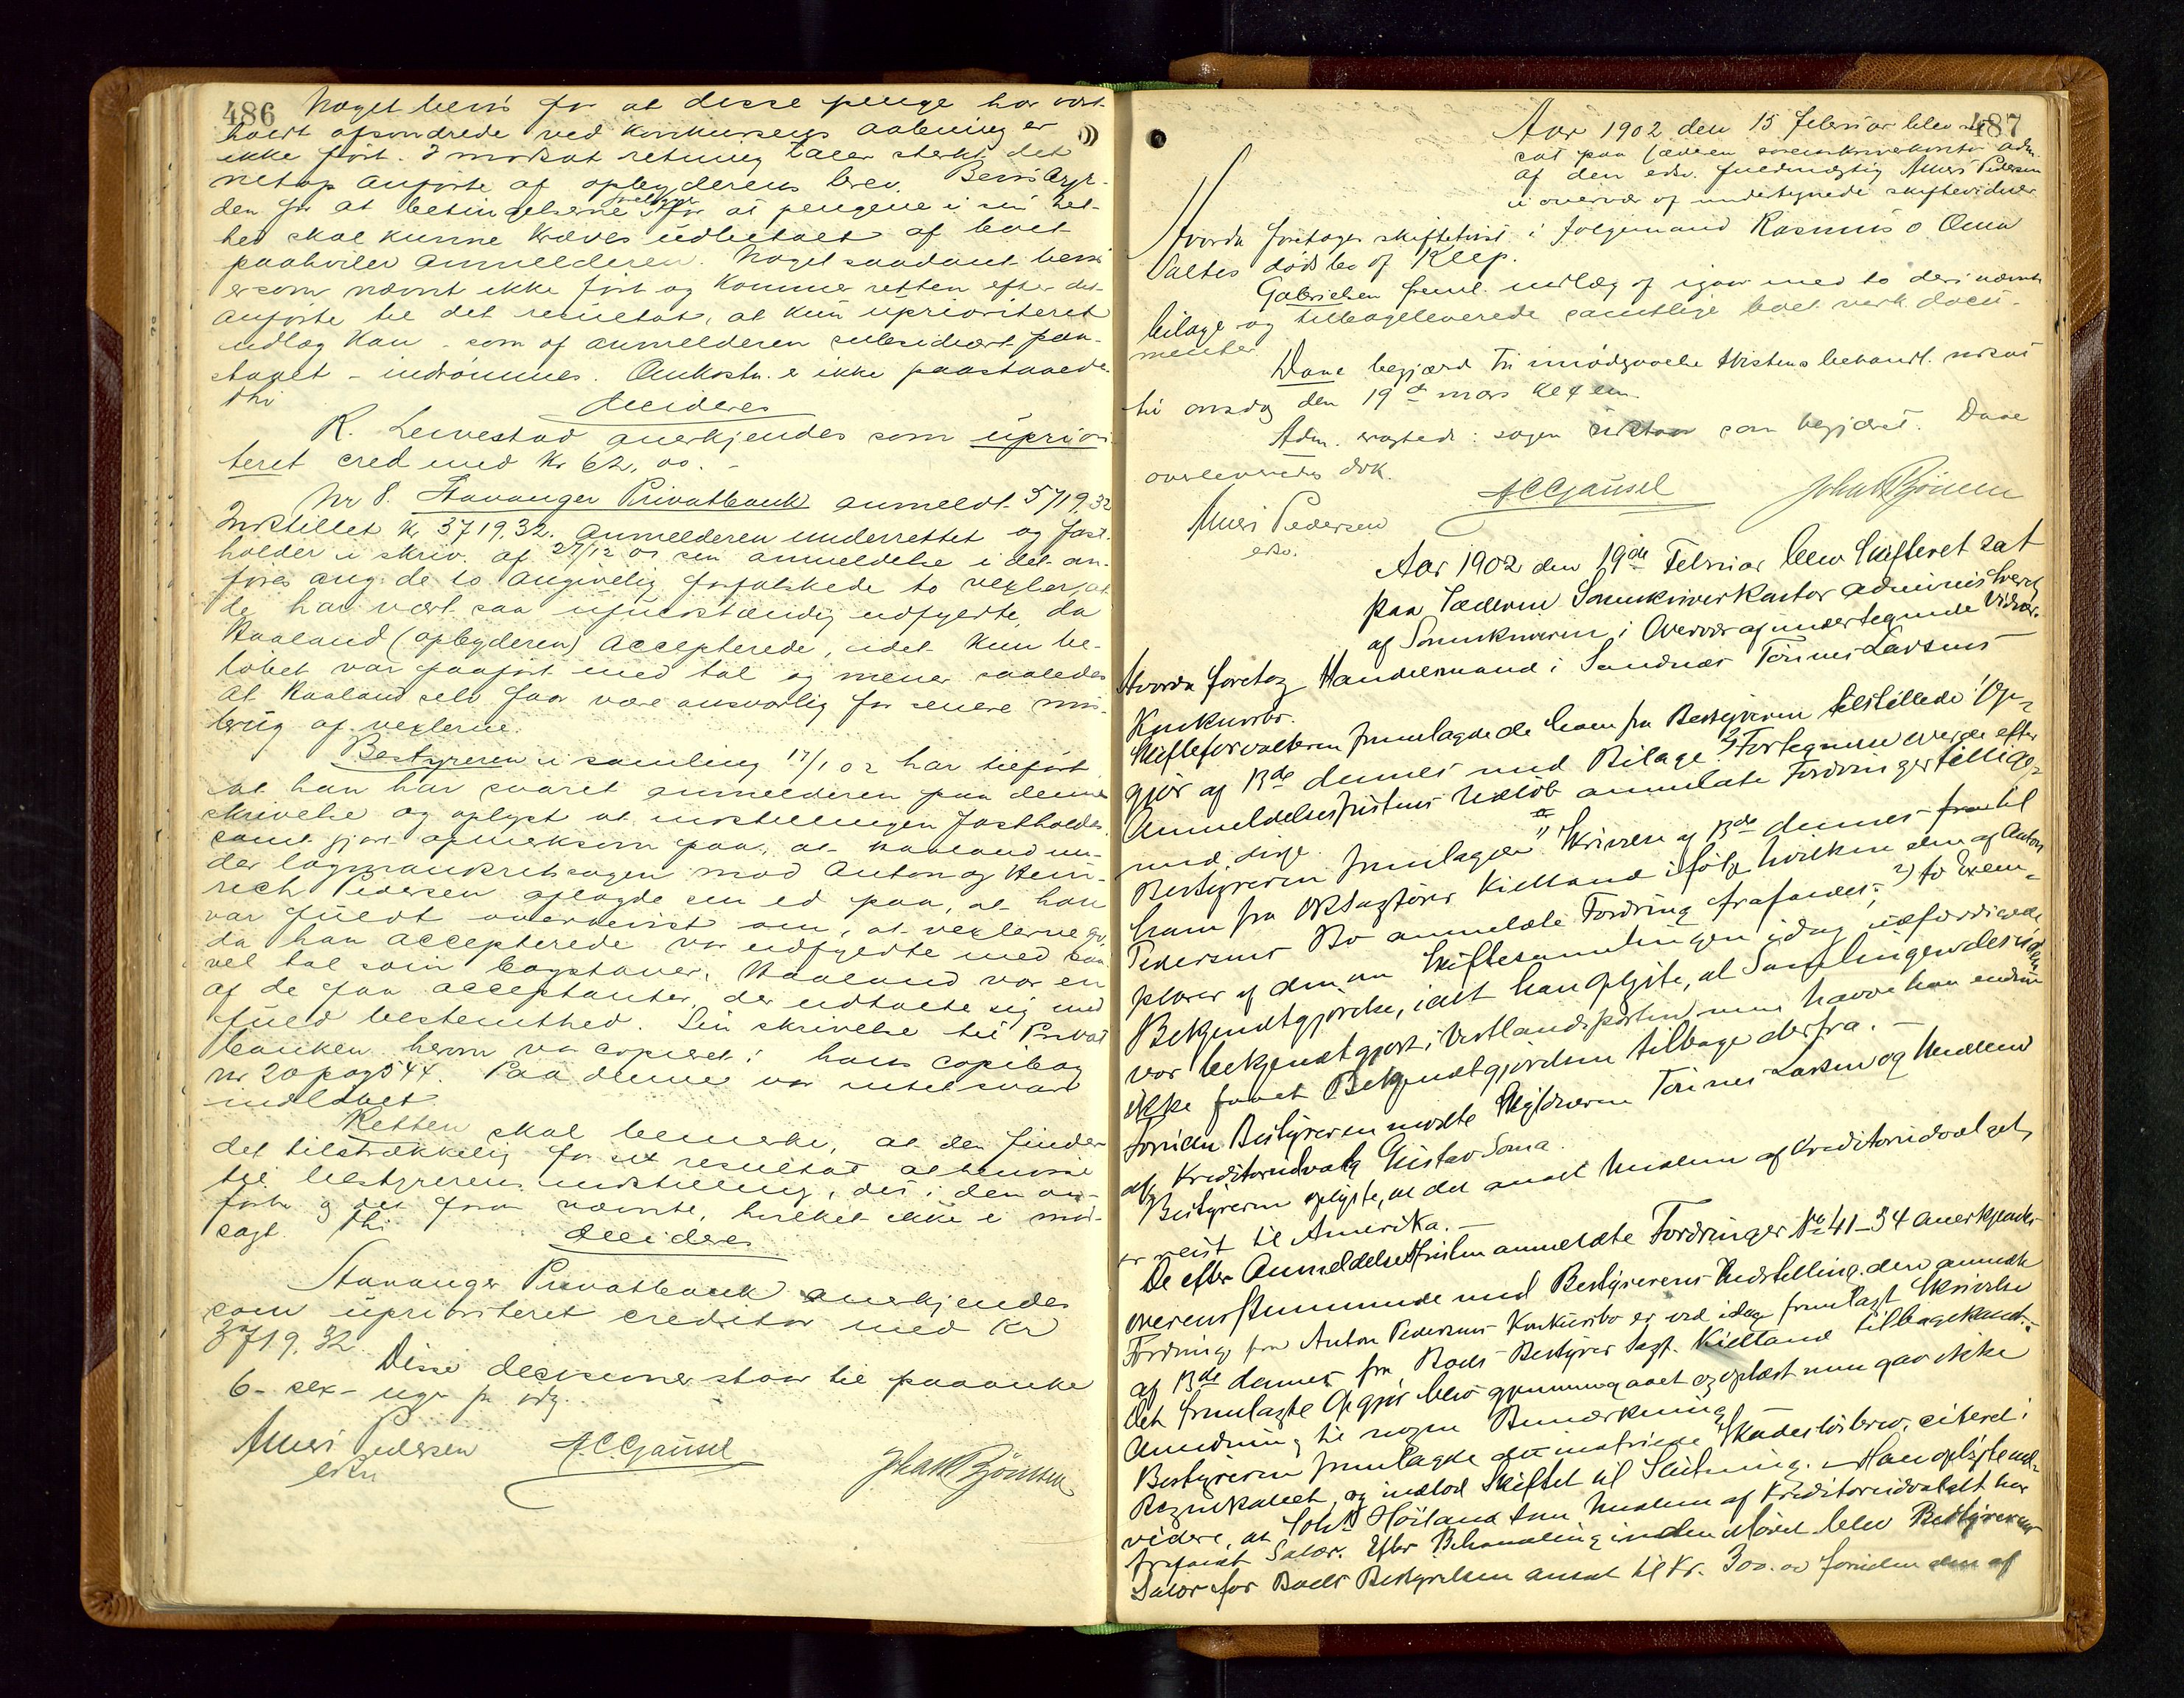 486
Noget bevis for at disse penge har vært
holdt afsondrede ved konkursens aabning er
ikke ført. I motsat retning taler sterkt det
netop anførte af opbyderens brev. Bevisbyr-
den for at betingelserne foreligger for at pengene i sin hel-
hed skal kunne kræves udbetalt af boet
paahviler anmelderen. Noget saadant bevis
er som nævnt ikke ført og kommer retten efter det
anførte til det resultat, at kun uprioriteret
udlæg kan - som af anmelderen subsidiært paa-
staaet - indrømmes. Omkostn. er ikke paastaaede
Thi
decideres
R. Levestad anerkjendes som upriori-
teret cred med Kr 62,00.-
Nr 8. Stavanger Privatbank anmeldt 5719,32
Indstillet Kr 3719,32. Anmelderen underrettet og fast-
holder i skriv. af 27/12 01 sin anmeldelse i det an-
føres ang. de to angivelig forfalskede to vexler, at
de har vært saa ufuldstændig udfyldte, da
Kaaland (opbyderen) accepterede, idet kun be-
løbet var paaført med tal og mener saaledes
at Kaaland selv faar være ansvarlig for senere mis-
brug af vexlerne.
Bestyreren i samling 17/1 02 har tilført
at han har svaret anmelderen paa denne
skrivelse og oplyst at indstillingen fastholdes
samt gjort opmerksom paa, at Kaaland un-
der lagmandsretssagen mod Anton og Hen-
rich Pedersen aflagde sin ed paa, at han
var fuldt overbevist om, at vexlerne
da han accepterede var udfyldte med saa
vel tal som bogstaver. Kaaland var en
af de faa acceptanter, der udtalte sig med
fuld bestemthed. Sin skrivelse til Privat
banken herom var copieret i hans copibog
Nr. 20 pag 544. Paa denne var intet svar
indløbet.
Retten skal bemerke, at den finder
det tilstrækkelig for sit resultat at henvise
til bestyrerens indstilling, det i den an-
førte og det foran nævnte, hvilket ikke er mod-
sagt. Thi
decideres
Stavanger Privatbank anerkjendes
som uprioriteret creditor med Kr
3719.32
Disse decisioner staar til paaanke
6 - sex - uger fra idag.
Amesi Pedersen A.C. Gausel
edsv. Johan Bjørnsen
487
Aar 1902 den 15 februar blev ret
sat paa Jæderen sorenskriverkontor adm.
af den edsv. fuldmægtig Amesi Pedersen
i overvær af undertegnede skiftevidner
Hvorda foretoges skiftetvist i folgemand Rasmus O Oma
Saltes dødsbo of Klep.
Gabrielsen freml. indlæg of igaar med to deri nævnte
bilage og tilbageleverede samtlige boet vedk. docu-
menter
Dane begjærd til imødgaaelse tvistens behandl. udsat
til onsdag den 19de mars kl 4 em.
Adm. eragtede: sagen udstaar som begjæret. Dane
overleveredes dok.
Amesi Pedersen A.C. Gausel Johan Bjørnsen
edsv.
Aar 1902 den 19de Februar blev Skifteret sat
paa Jæderens Sorenskriverkontor administreret
af Sorenskriveren i Overvær af undertegnede Vidner.
Hvorda foretog Handelsmand i Sandnæs Tønnes Larsens
Konkursbo.
Skifteforvalteren fremlagde de ham fra Bestyreren tilstillede 1) Op-
gjør af 13de dennes med Bilage. 2) Fortegnelse over de efter
Anmeldelsesfristens Udløb anmeldte Fordringer tillige-
med dige.
Bestyreren fremlagde 1) Skrivelse af 13de dennes fra til
ham fra Oksagfører Kielland ifølge hvilken den af Anton
Pedersens Bo anmeldte Fordring frafaldes; 2) to Exem-
plarer af den om Skiftesamlingen idag udfærdigede
Bekjendtgjørelse, idet han oplyste, at Samlingen desuden
var bekjendtgjort i Vestlandsposten, men havde han endnu
ikke faaet Bekjendtgjørelsen tilbage derfra. -
Foruden Bestyreren mødte Skyldneren Tønnes Larsen og Medlem
af Kreditorudvalg Gustav Soma.
Bestyreren oplyste, at det andet Medlem af Kreditorudvalget
er reist til Amerika. -
De efter Anmeldelsesfristen anmeldte Fordringer No 41-34 anerkjendes
overensstemmende med Bestyrerens Indstilling, den anmeldte
Fordring fra Anton Pedersens Konkursbo er ved idag fremlagt Skrivelse
af 13de dennes fra Boets Bestyrer Sagf. Kielland tilbagekaldt.
Det fremlagte Opgjør blev gjennemgaaet og oplæst men gav ikke
Anledning til nogen Bemærkning. -
Bestyreren fremlagde det indfriede Skadesløsbrev, citeret i
Regnskabet, og indlod Skiftet til Slutning. - Han oplyste end-
videre, at Joh. Høiland som Medlem af Kreditorudvalget har
frafaldt Salær. Efter Behandling inden Mødet blev Bestyrerens
Salær for Boets Bestyrelsen ansat til Kr. 300.00 foruden den af